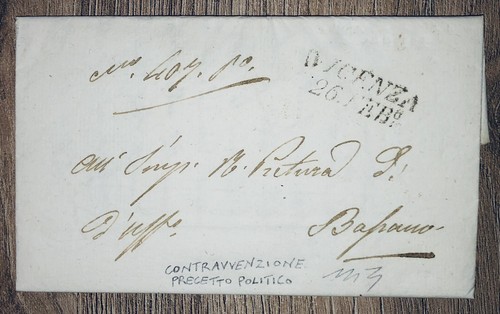 N.º 407. P.º
VICENZA
26. FEB.º
All' Imp. R. Pretura
d'uff.º
Bassano
CONTRAVVENZIONE
PRECETTO POLITICO